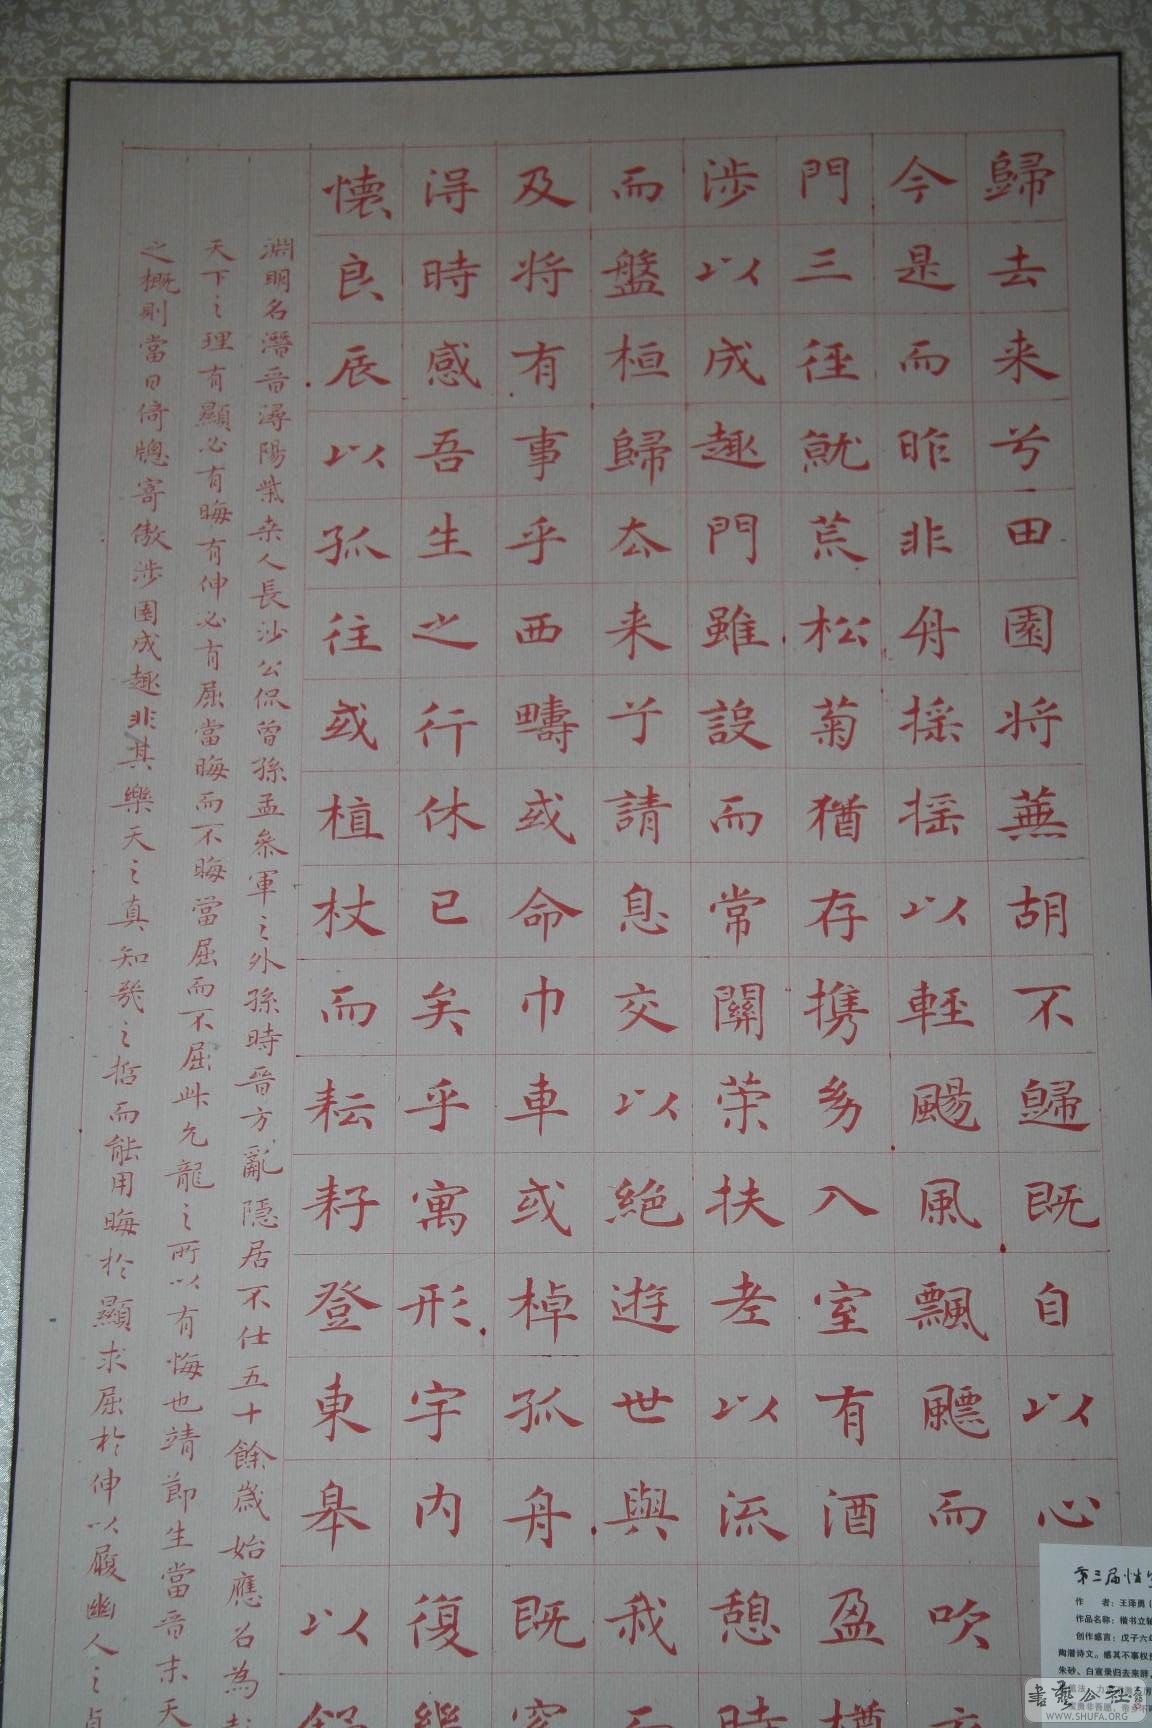 歸去来兮田園将蕪胡不歸既自以心
今是而昨非舟揺揺以輕颺風飄飄而吹
門三徑就荒松菊猶存携幼入室有酒盈樽
涉以成趣門雖設而常關策扶老以流憩時
而盤桓歸去来兮請息交以絶遊世與我
及将有事乎西疇或命巾車或棹孤舟既窕
淂時感吾生之行休已矣乎寓形宇内復
懐良辰以孤往或植杖而耘耔登東皋以舒
淵明名潛晋潯陽柴桑人長沙公侃曾孫孟叅軍之外孫時晋方亂隠居不仕五十餘歳始應召為彭
天下之理有顯必有晦有伸必有屈當晦而不晦當屈而不屈此亢龍之所以有悔也靖節生當晋末天
之概則當日倚牕寄傲涉園成趣非其樂天之真知幾之哲而能用晦於顯求屈於伸以履幽人之貞
第三届
作 者：王泽勇
作品名称：楷书立轴
创作感言：戊子六
陶潜诗文。感其不事权
朱砂、白宣录归去来辞
書藝公社
WWW.SHUFA.ORG